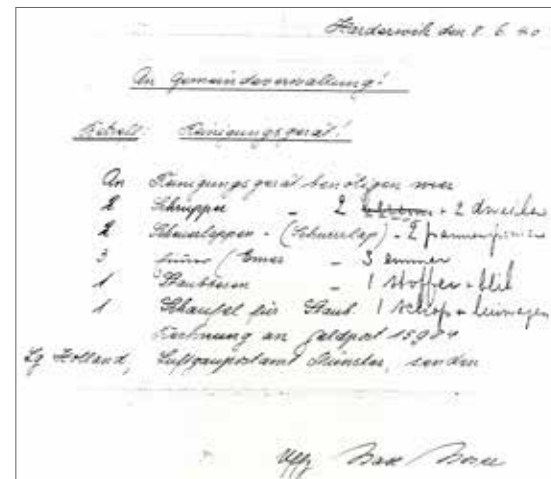 Harderwik den 8. 6. 40
An Gemeindeverwaltung!
Betreff: Reinigungsgerät!
An Reinigungsgerät benötigen wir
2 Schrupper - 2 + 2 dweilen
2 Scheuerlappen - (Scheuerlap) - 2
3 (Emer - 3 emmer
1 Staubbesen - 1 stoffer + blik
1 Schaufel für Staub. 1
Rechnung an Feldpost
Lg Holland, Luftgaupostamt Münster, senden
Uffz